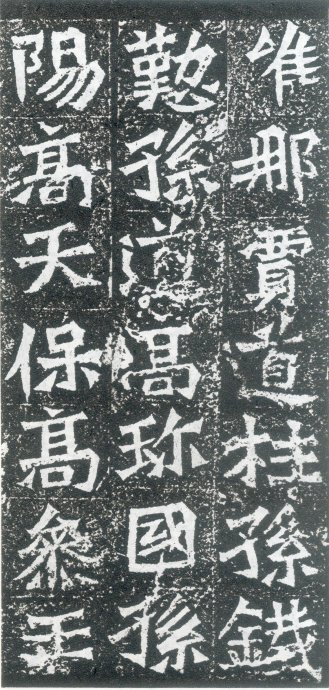 唯那賈道桂孫鐵
懃孫道高珎國孫
陽高天保高叅王